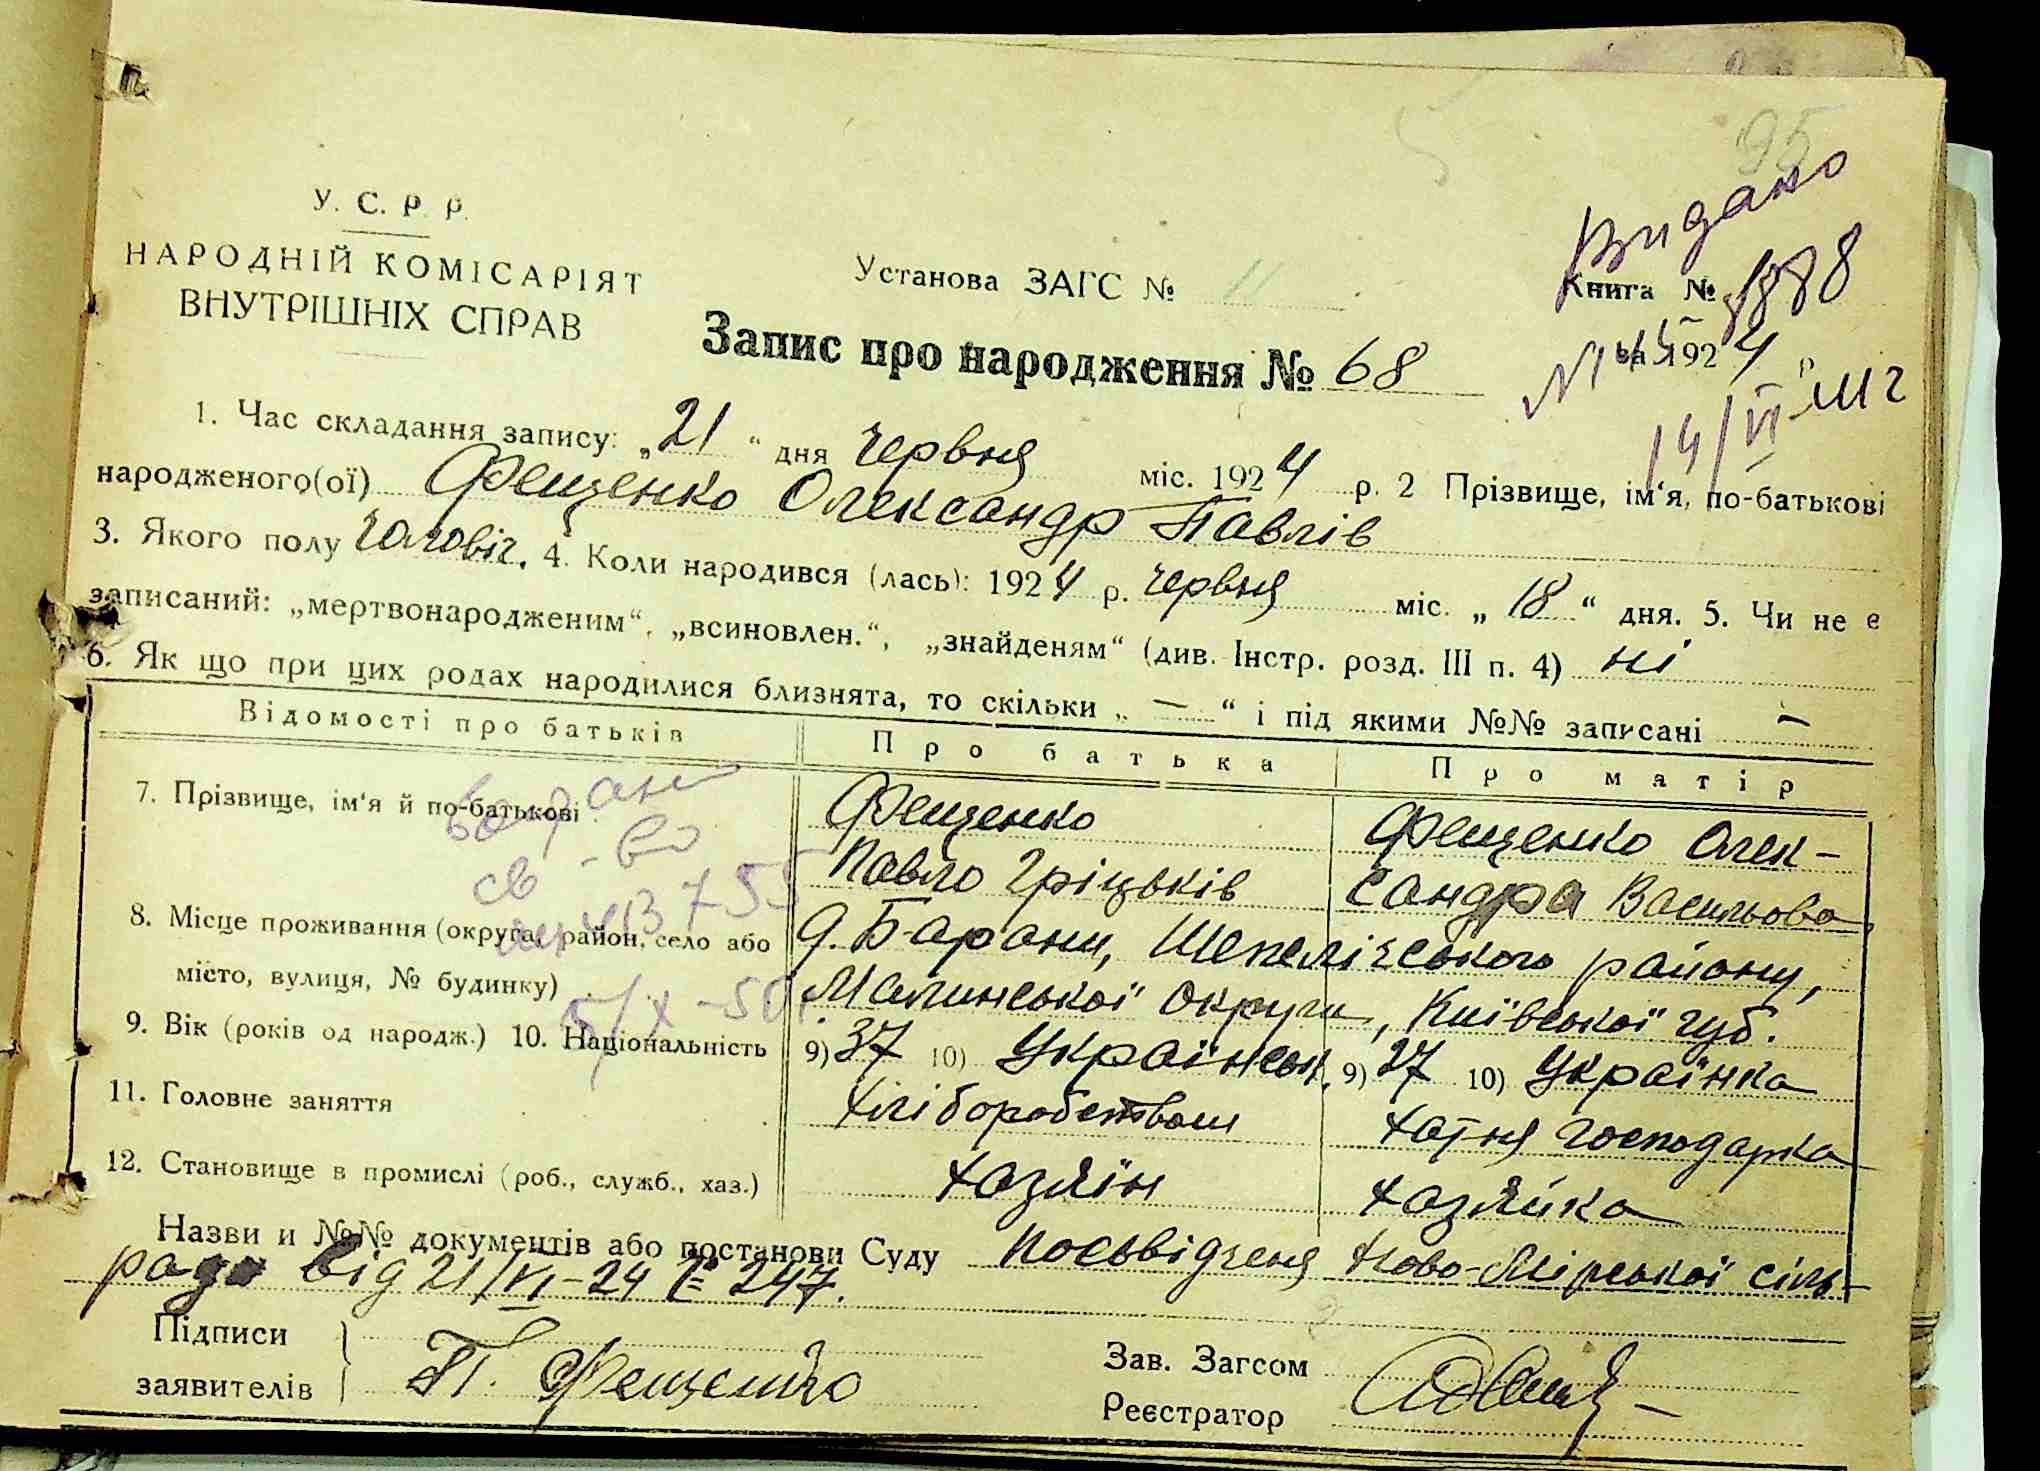 95
У. С. Р. Р.
НАРОДНІЙ КОМІСАРІЯТ
ВНУТРІШНІХ СПРАВ
Установа ЗАГС № 11
Видано
Книга №
за 1924 р.
14/VI
Запис про народження № 68
1. Час складання запису: „21“ дня червня міс. 1924 р. 2 Прізвище, ім'я, по-батькові
народженого(ої) Фещенко Олександр Павлів
3. Якого полу чоловіч. 4. Коли народився (лась): 1924 р. червня міс. „18“ дня. 5. Чи не є
записаний: „мертвонародженим“, „всиновлен.“, „знайденям“ (див. Інстр. розд. III п. 4) ні
6. Як що при цих родах народилися близнята, то скільки „ — “ і під якими №№ записані —
Відомості про батьків Про батька Про матір
7. Прізвище, ім'я й по-батькові Фещенко Павло Гріцьків Фещенко Олек-
сандра Васильова
8. Місце проживання (округа, район, село або д. Барани, Шепелічського району,
місто, вулиця, № будинку) Малинської округи, Київської губ.
9. Вік (років од народж.) 10. Національність 9) 37 10) Українськ. 9) 27 10) Українка
11. Головне заняття хліборобством хатня господарка
12. Становище в промислі (роб., служб., хаз.) хазяїн хазяйка
Назви и №№ документів або постанови Суду Посьвідченя Ново-Мірської сіль-
ради від 21/VI-24 № 247.
Підписи
заявителів П. Фещенко
Зав. Загсом
Реєстратор